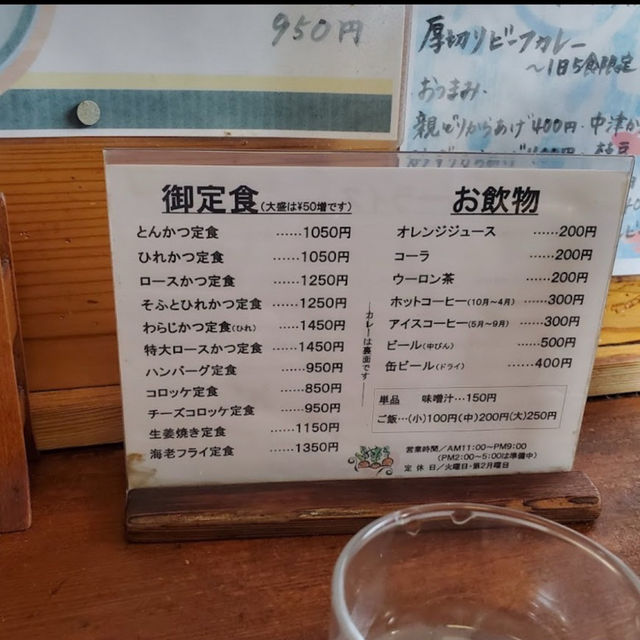 950円
厚切りビーフカレー
～1日5食限定
おつまみ.
親どりからあげ400円. 中津か
御定食(大盛は¥50増です)
とんかつ定食 ……1050円
ひれかつ定食 ……1050円
ロースかつ定食 ……1250円
そふとひれかつ定食 ……1250円
わらじかつ定食(ひれ) ……1450円
特大ロースかつ定食 ……1450円
ハンバーグ定食 ……950円
コロッケ定食 ……850円
チーズコロッケ定食 ……950円
生姜焼き定食 ……1150円
海老フライ定食 ……1350円
カレーは裏面です
お飲物
オレンジジュース ……200円
コーラ ……200円
ウーロン茶 ……200円
ホットコーヒー(10月～4月) ……300円
アイスコーヒー(5月～9月) ……300円
ビール(中びん) ……500円
缶ビール(ドライ) ……400円
単品 味噌汁…150円
ご飯…(小)100円(中)200円(大)250円
営業時間／AM11:00～PM9:00
(PM2:00～5:00は準備中)
定休日／火曜日・第2月曜日